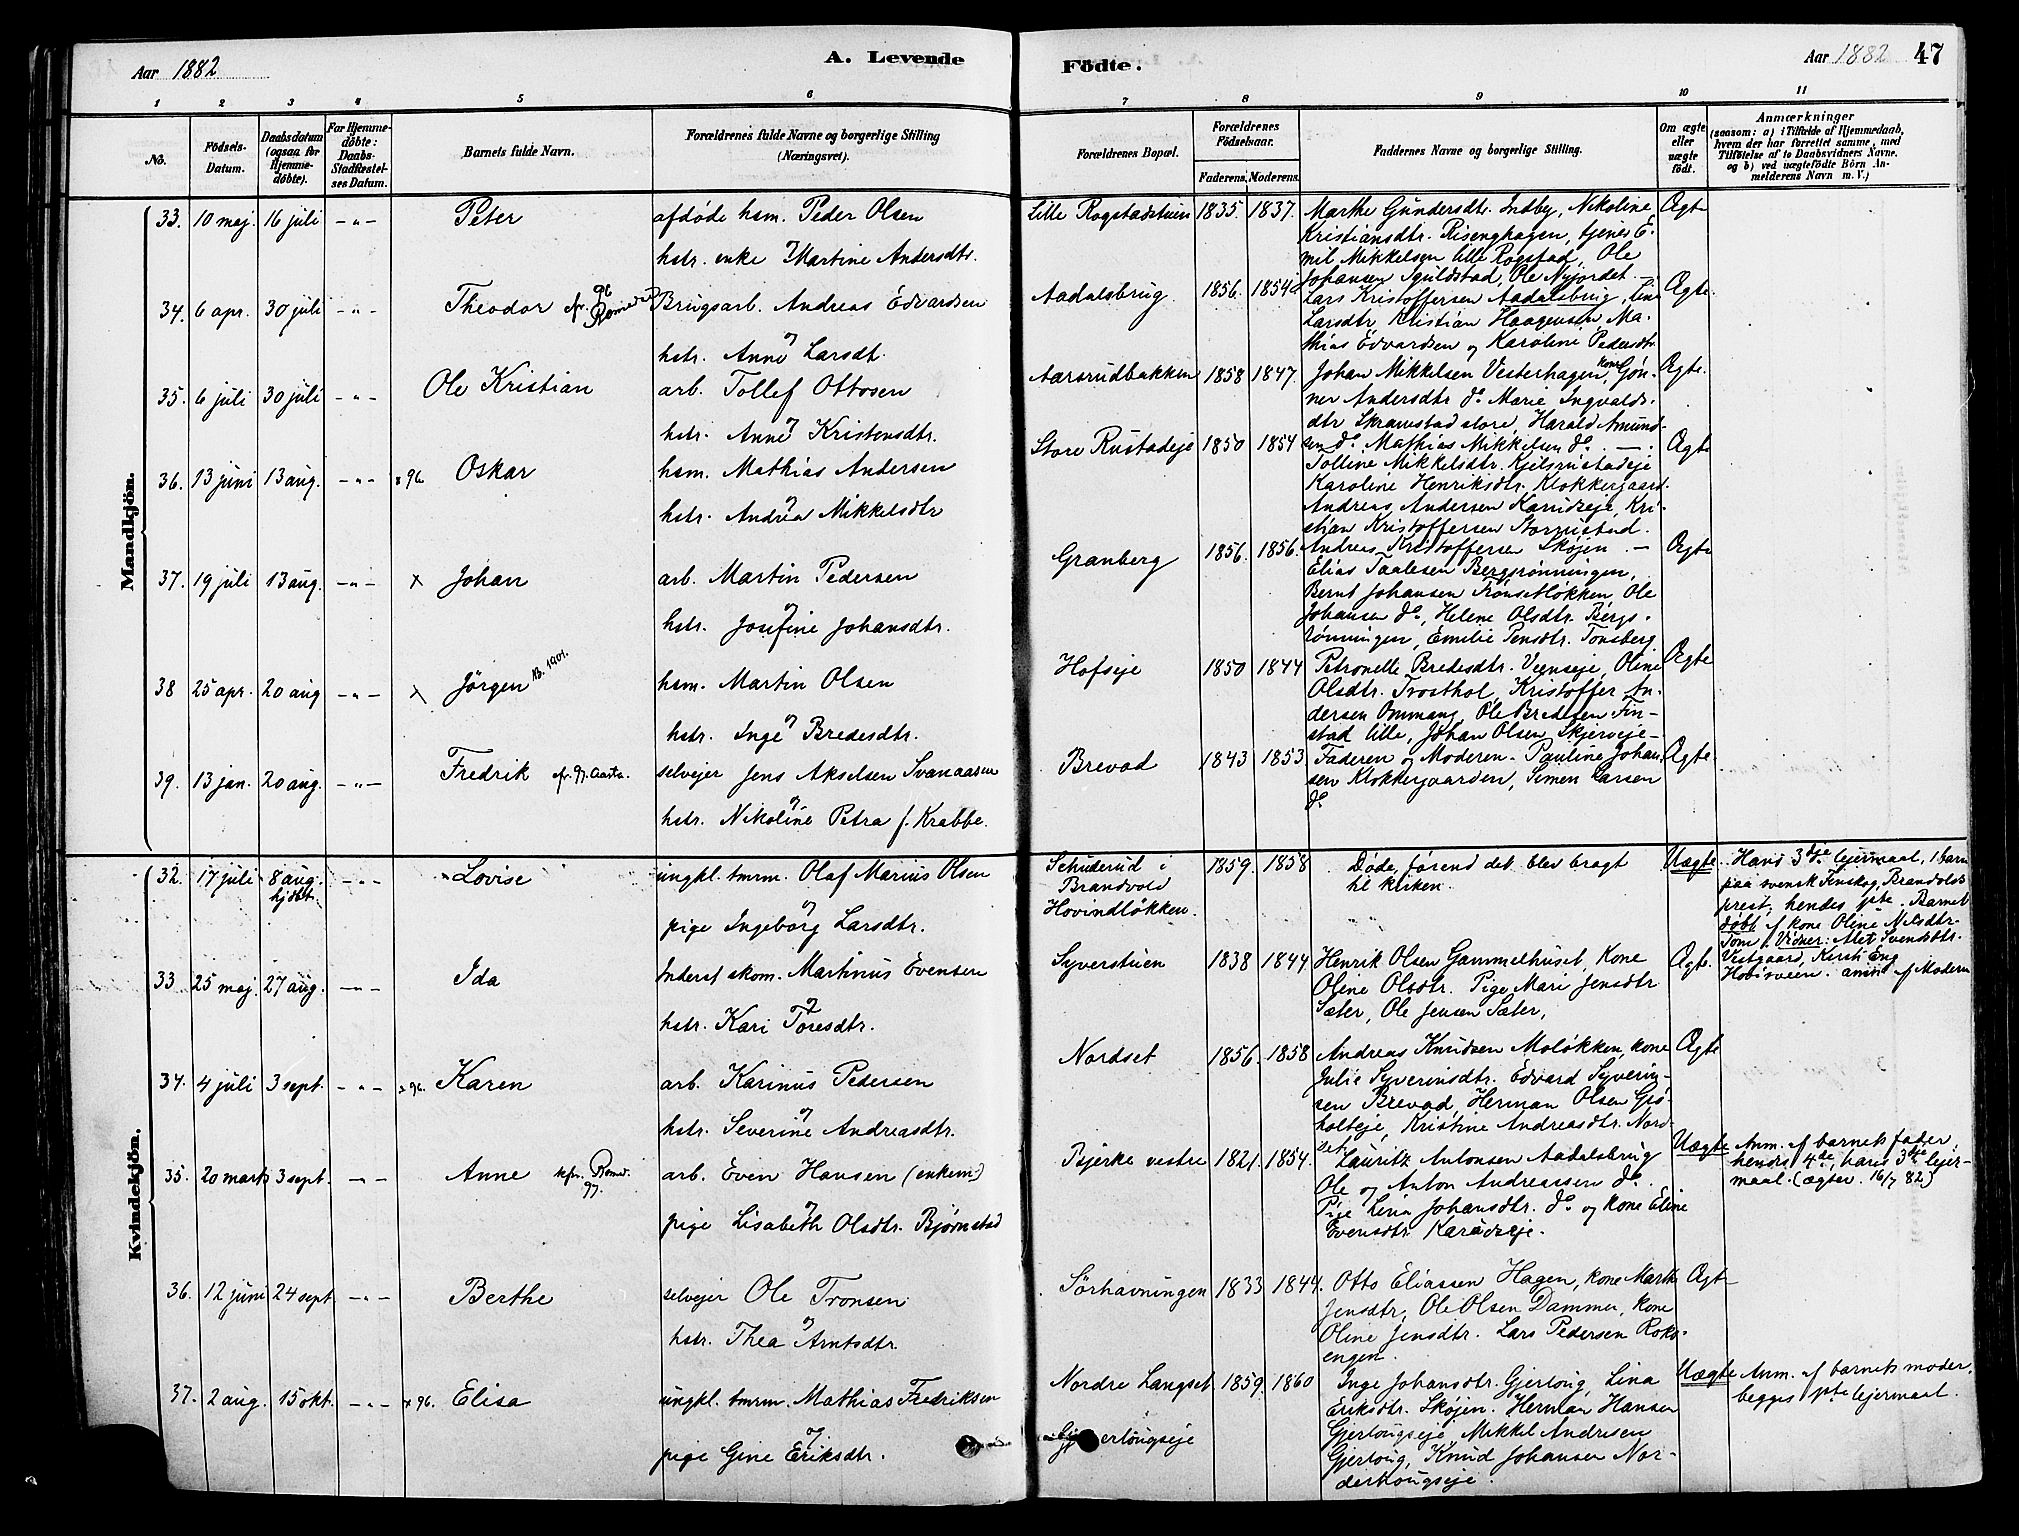 Aar 1882
A. Levende
Födte.
Aar 1882
47
1 2 3 4 5 6
7 8 9 10 11
No.
Födsels-
Datum.
Daabsdatum
(ogsaa for
Hjemme-
døbte).
For Hjemme-
döbte:
Daabs-
Stadfæstel-
ses Datum.
Barnets fulde Navn.
Forældrenes fulde Navne og borgerlige Stilling
(Næringsvei).
Forældrenes Bopæl.
Forældrenes
Födselsaar.
Faderens. Moderens.
Faddernes Navne og borgerlige Stilling.
Om ægte
eller
uægte
födt.
Anmærkninger
(saasom: a) i Tilfælde af Hjemmedaab,
hvem der har forrettet samme, med
Tilföielse af to Daabsvidners Navne,
og b) ved uægtefödte Börn An-
melderens Navn m. V.)
Mandkjön.
33. 10 maj. 16 juli -"- Peter
afdøde hsm. Peder Olsen
hstr. enke Martine Andersdtr.
Lille Rogstadstuen 1835. 1837.
Marthe Gundersdtr. Indby, Nikoline
Kristiansdtr. Risenghagen, tjener E-
mil Mikkelsen lille Rogstad, Ole
Johansen Sguldstad, Ole Nyjordet. -
Ægte
34. 6 apr. 30 juli -"- Theodor
Brugsarb. Andreas Edvardsen
og
hstr. Anne Larsdt.
Aadalsbrug 1856. 1854.
Lars Kristoffersen Aadalsbrug, Line
Larsdtr, Kristian Haagensen, Ma-
thias Edvardsen og Karoline Pedersdtr.
Ægte.
35. 6 juli 30 juli -"- Ole Kristian
arb. Tollef Ottosen
og
hstr. Anne Kristensdtr.
Aarsrudbakken 1858 1847.
Johan Mikkelsen Vesterhagen, kone Gøn-
ner Andersdtr do. Marie Ingvalds-
dtr Skramstad store, Harald Amund-
sen do. Mathias Mikkelsen do. -
Ægte.
36. 13 juni 13 aug. -"- x 96. Oskar
hsm. Mathias Andersen
og
hstr. Andrea Mikkelsdtr
Store Rustadeje 1850 1854
Tolline Mikkelsdtr. Kjelsrustadeje
Karoline Henriksdtr. Klokkergaard.
Andreas Andersen Karudseje, Kri-
stian Kristoffersen Storrustad.
Andreas Kristoffersen Skøjen. -
Ægte
37. 19 juli 13 aug. -"- x Johan
arb. Martin Pedersen
og
hstr. Josefine Johansdtr.
Granberg 1856. 1856.
Elias Taalesen Bergrønningen,
Bernt Johansen Trønsetløkken, Ole
Johansen do, Helene Olsdtr. Bergs-
rønningen, Emilie Pensdtr. Tønsberg
Ægte
38 25 apr. 20 aug -"- x Jørgen 1901.
hsm. Martin Olsen
og
hstr. Inge Bredesdtr.
Hofseje 1850 1844
Petronelle Bredesdtr. Veenseje, Oline
Olsdtr. Trosthol, Kristoffer An-
dersen Ommang, Ole Bredesen Fin-
stad lille, Johan Olsen Skjerveje-
Ægte
39. 13 jan. 20 aug. -"- Fredrik
selvejer Jens Akselsen Svenaasen
og
hstr. Nikoline Petra f. Krabbe.
Brevad 1843 1853.
Faderen og Moderen. Pauline Johan-
sen Klokkergaarden, Simen Larsen
do
Ægte.
Kvindekjön.
32. 17 juli 8 aug. -"- Lovise
hjdbt.
ungkl. tmrm. Olaf Marius Olsen
og
pige Ingeborg Larsdtr.
Schuderud i
Brandvold
Hovindløkken.
1859. 1858
Døde, førend det blev bragt
til kirken.
Uægte
Hans 3die lejermaal, 1 barn
paa svensk Finskog, Brandvolds
prest; hendes 1ste. Barnet
døbt af kone Oline Nilsdtr.
Tom. Vidner: Alet Svendsdtr.
Vestgaard, Kersti Eng
Hobisveen. anm. af Moderen
33 25 maj. 27 aug. -"- Ida
Inderst skom. Martinus Evensen
og
hstr. Kari Toresdtr.
Syverstuen 1838 1844
Henrik Olsen Gammelhuset, kone
Olene Olsdtr. Pige Mari Jensdtr
Sæter, Ole Jensen Sæter,
Ægte.
34. 4 juli 3 sept. -"- x 96. Karen
arb. Karinus Pedersen
og
hstr. Severine Andreasdtr.
Nordset 1856. 1858
Andreas Knudsen Moløkken, kone
Julie Syverinsdtr. Edvard Syverin-
sen Brevad, Herman Olsen Grø-
holteje, Kristine Andreasdtr. Nord-
set
Ægte
35. 20 marts 3 sept. -"- Anne
arb. Even Hansen (enkem.)
og
pige Lisabeth Olsdtr. Bjørnstad
Bjerke vestre 1821. 1854.
Lauritz Antonsen Aadalsbrug
Ole og Anton Andreassen do.
Pige Lina Johansdtr. do og kone Eline
Evensdtr Karudseje.
Uægte
Anm. af barnets fader,
hendes 4de, hans 3die lejer-
maal. (ægtev. 16/7 82)
36. 12 juni 24 sept -"- Berthe
selvejer Ole Tronsen
og
hstr. Thea Arntsdtr.
Sörhavningen 1833 1844.
Otto Eliassen Hagen, kone Marth
Jensdtr, Ole Olsen Dammen, kone
Oline Jensdtr. Lars Pedersen Roko-
engen.
Ægte
37. 2 aug. 15 okt. -"- x 96. Elisa
ungkl. tmrm. Mathias Fredriksen
og
pige Gine Eriksdtr.
Nordre Langset 1859. 1860
Gjerlougseje
Inge Johansdtr. Gjerloug, Lina
Eriksdtr. Skøjen. Herman Hansen
Gjerlougseje Mikkel Andresen
Gjerloug, Knud Johansen Nor-
derhougseje.
Uægte
Anm. af barnets moder.
begges 1ste lejermaal.